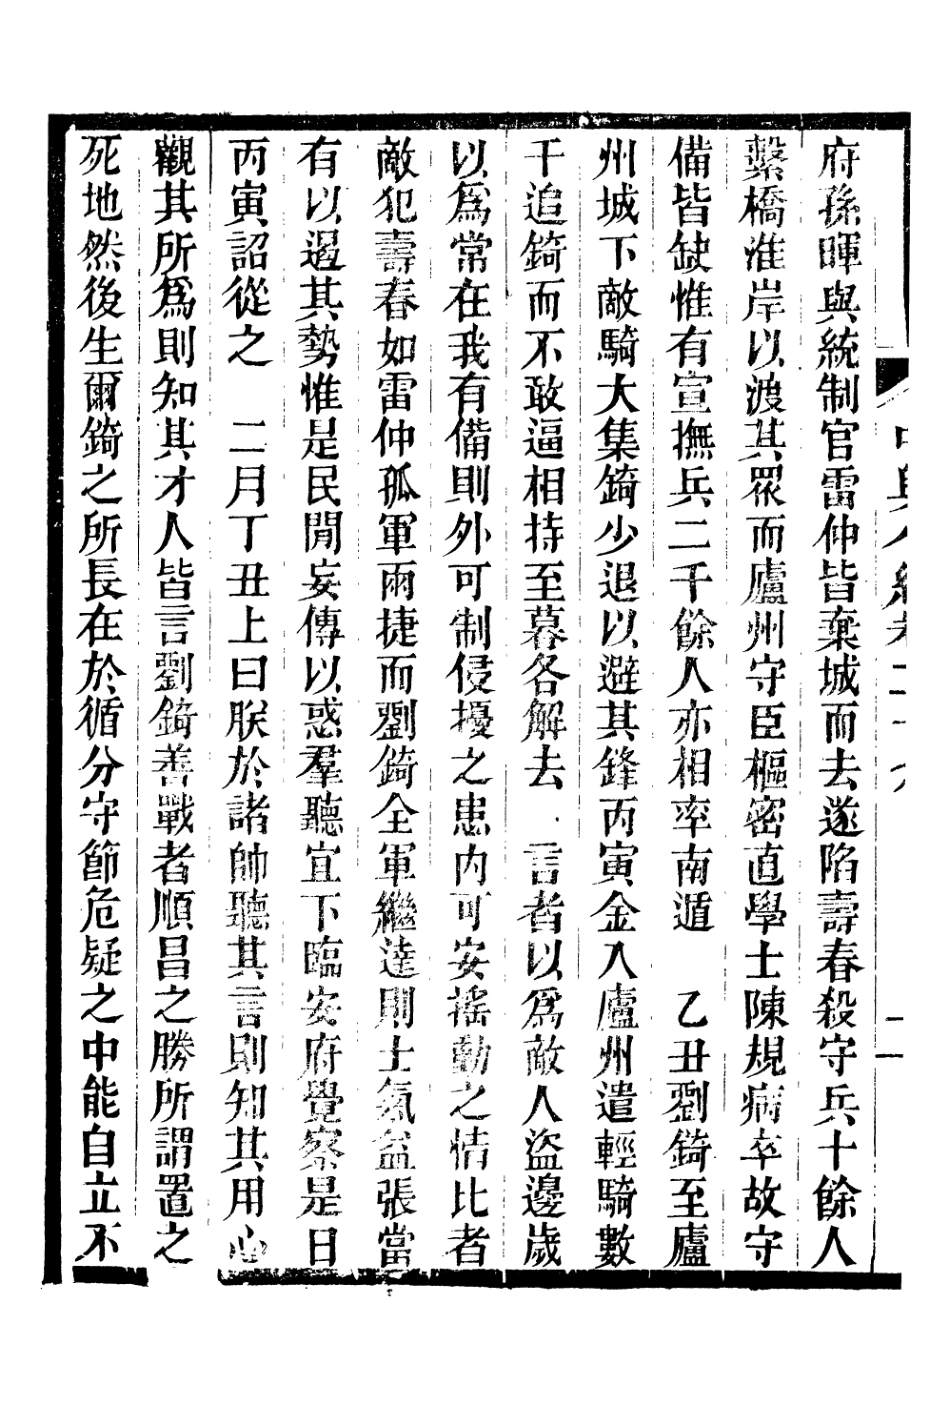 府孫暉與統制官雷仲皆棄城而去遂陷壽春殺守兵十餘人
繫橋淮岸以渡其眾而廬州守臣樞密直學士陳規病卒故守
備皆缺惟有宣撫兵二千餘人亦相率南遁　乙丑劉錡至廬
州城下敵騎大集錡少退以避其鋒丙寅金入廬州遣輕騎數
千追錡而不敢逼相持至暮各解去　言者以為敵人盜邊歲
以為常在我有備則外可制侵擾之患內可安搖動之情比者
敵犯壽春如雷仲孤軍兩捷而劉錡全軍繼達則士氣益張當
有以遏其勢惟是民間妄傳以惑羣聽宜下臨安府覺察是日
丙寅詔從之　二月丁丑上曰朕於諸帥聽其言則知其用心
觀其所為則知其才人皆言劉錡善戰者順昌之勝所謂置之
死地然後生爾錡之所長在於循分守節危疑之中能自立不